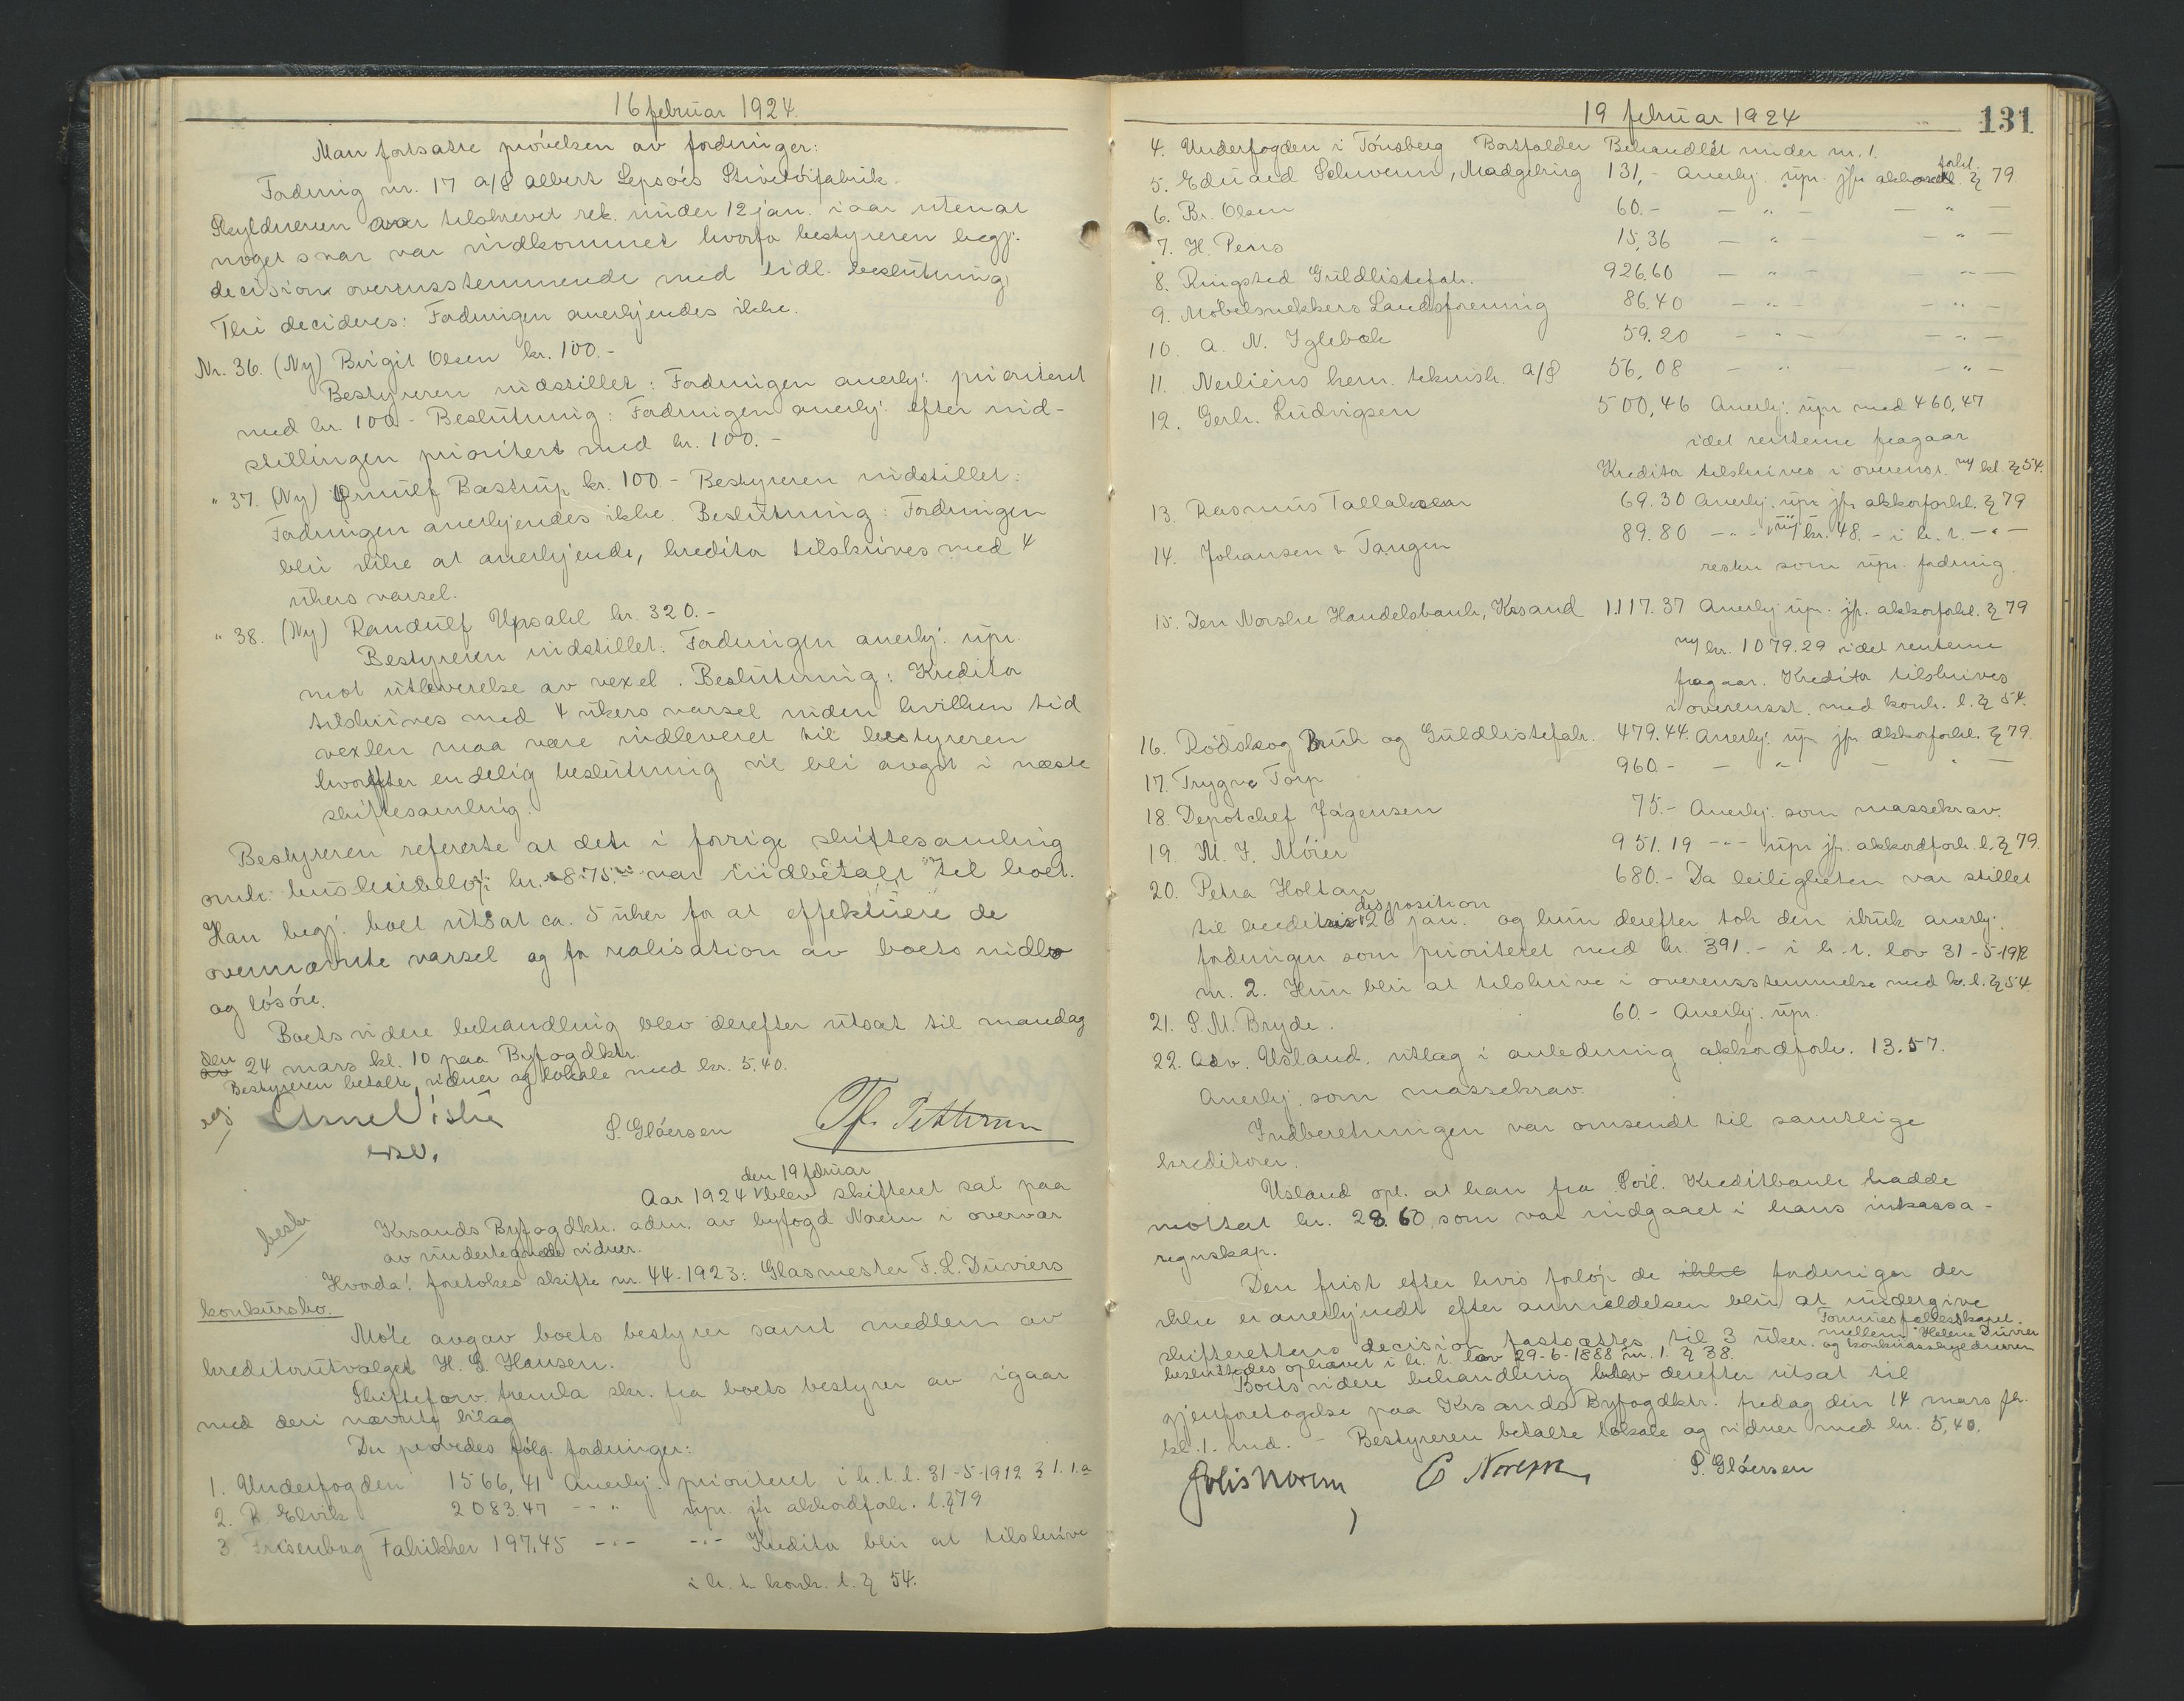 16 februar 1924.
Man fortsatte prövelsen av fordringer:
Fordring nr. 17 A/S Albert Lepsöes Stivetöifabrik.
Skyldneren var tilskrevet rek. under 12 jan. i aar uten at
noget svar var indkommet hvorfor bestyreren begj.
decision overensstemmende med tidl. beslutning,
Thi decideres: Fordringen anerkjendes ikke.
Nr. 36. (Ny) Birgit Olsen kr. 100.-
Bestyreren indstillet: Fordringen anerkj. prioritert
med kr. 100 - Beslutning: Fordringen anerkj. efter ind-
stillingen prioritert med kr. 100.-
" 37. (Ny) Ørnulf Bastrup kr. 100.- Bestyreren indstillet:
Fordringen anerkjendes ikke. Beslutning: Fordringen
blir ikke at anerkjende, kreditor tilskrives med 4
ukers varsel.
" 38. (Ny) Randulf Upsahl kr. 320.-
Bestyreren indstillet: Fordringen anerkj. upr.
mot utleverelse av vexel. Beslutning: Kreditor
tilskrives med 4 ukers varsel inden hvilken tid
vexlen maa være indleveret til bestyreren
hvorefter endelig beslutning vil bli avgit i næste
skiftesamling.
Bestyreren refererte at det i forrige skiftesamling
omh. husleiebelöp kr. 875.- var indbetalt til boet.
Han begj. boet utsat ca. 5 uker for at effektuere de
ovennævnte varsel og for realisation av boets indbo
og lösöre.
Boets videre behandling blev derefter utsat til mandag
den 24 mars kl. 10 paa Byfogdktr.
Bestyreren betalte vidner og lokale med kr. 5.40.
Arne Vislie
P. Glöersen
Th. Pettersen
den 19 februar
Aar 1924 blev skifteret sat paa
Krsands Byfogdktr. adm. av byfogd Norem i overvær
av undertegnede vidner.
Hvorda! foretokes skifte nr. 44-1923: Glasmester F. L. Duviers
konkursbo.
Möte avgav boets bestyrer samt medlem av
kreditorutvalget H. G. Hansen.
Skifteforv. fremla skr. fra boets bestyrer av igaar
med deri nævnte bilag
Der prövedes fölg. fordringer:
1. Underfogden 1566,41 Anerkj. prioriteret i h. t. l. 31-5-1912 § 1. 1.a
2. R. Elvik 2083.47 -"- upr. jfr akkordforh. l. § 79
3. Frisenborg Fabrikker 197.45 -"- -"- Kreditor blir at tilskrive
i h. t. konk. l. § 54.
19 februar 1924
131
4. Underfogden i Tönsberg Bortfalder Behandlet under nr. 1.
5. Eduard Schwenn, Madgebring 131,- Anerkj. upr. jfr akkorforhl. § 79
6. Br. Olsen 60.- - " - - " -
7. H. Pens 15,36 - " - - " -
8. Ringsted Guldlistefab. 926.60 - " - - " -
9. Möbelsnekkers Landsforening 86.40 - " - - " -
10. A. N. Iglebæk 59.20 - " - - " -
11. Nerliens kem. teknisk. A/S 56,08 - " - - " -
12. Gerh. Ludvigsen 500,46 Anerkj. upr med 460,47
idet renterne fragaar
Kreditor tilskrives i overenst. m/ kl. § 54.
13. Rasmus Tallaksen 69.30 Anerkj. upr jfr akkorforhl. § 79
14. Johansen & Tangen 89.80 -"- m/ kr. 48.- i h. t. -"-
resten som upr. fordring.
15. Den Norske Handelsbank, Krsand 1117.37 Anerkj upr. jfr. akkorforhl. § 79
m/ kr. 1079.29 idet renterne
fragaar. Kreditor tilskrives
i overensst. med konk. l. § 54.
16. Rödskog Bruk og Guldlistefab. 479.44. Anerkj. upr jfr akkorforhl. § 79.
17. Trygve Torp 960.- - " - - " -
18. Depotchef Jägensen 75.- Anerkj. som massekrav.
19. M. J. Möier 951.19 -"- upr jfr. akkordforh. l. § 79.
20. Petra Holtan 680.- Da leiligheten var stillet
til hendes disposition 26 jan. og hun derefter tok den ibruk anerkj.
fordringen som prioriteret med kr. 391.- i h. t. lov 31-5-1912
nr. 2. Hun blir at tilskrive i overensstemmelse med k. l. § 54.
21. S. M. Bryde. 60.- Anerkj. upr.
22. Adv. Usland. utlæg i anledning akkordforh. 13.57.
Anerkj. som massekrav.
Indberetningen var omsendt til samtlige
kreditorer.
Usland opl. at han fra Soil. Kreditbank hadde
mottat kr. 28.60 som var indgaaet i hans inkasso-
regnskap.
Den frist efter hvis forlöp de ikke fordringer der
ikke er anerkjendt efter anmeldelsen blir at undergive
skifterettens decision fastsættes til 3 uker. Formuesfællesskapet mellem Helene Duvier og konkursskyldneren
besluttedes ophævet i h. t. lov 29-6-1888 nr. 1. § 38.
Boets videre behandling blev derefter utsat til
gjenforetagelse paa Krsands Byfogdktr. fredag den 14 mars
kl. 1. md. - Bestyreren betalte lokale og vidner med kr. 5,40.
Norem
C Norem
P. Glöersen